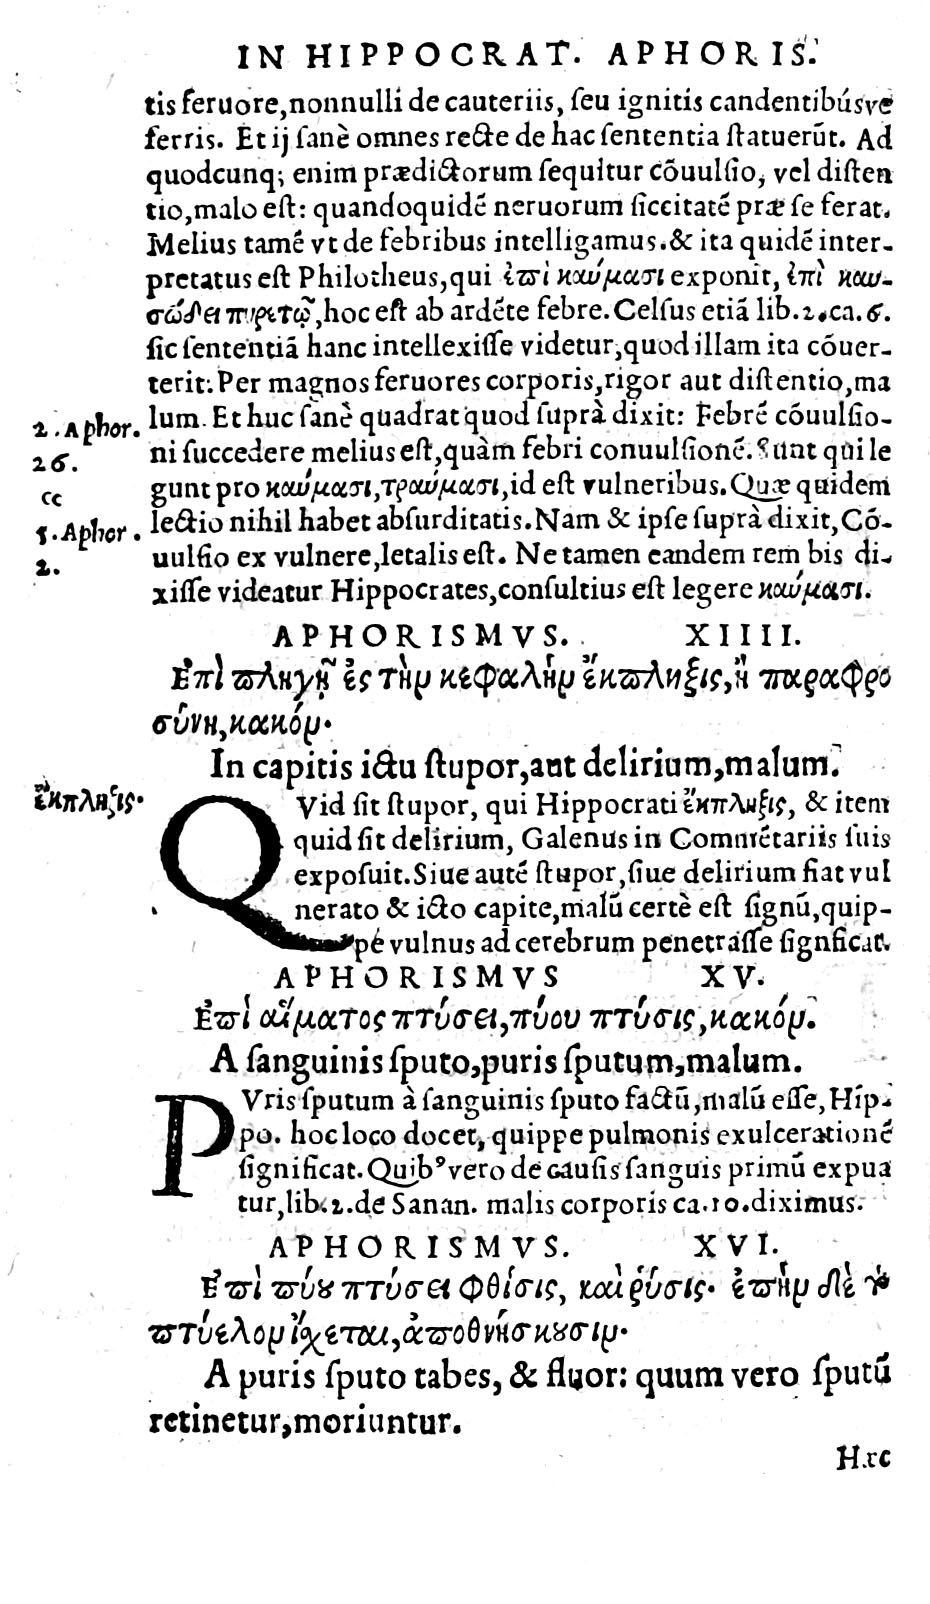 IN HIPPOCRAT. APHORIS.
tis feruore, nonnulli de cauteriis, ſeu ignitis candentibúsve
ferris. Et ij ſanè omnes recte de hac ſententia ſtatuerūt. Ad
quodcunq; enim prædictorum ſequitur cōuulſio, vel diſten
tio, malo eſt: quandoquidē neruorum ſiccitatē præ ſe ferat.
Melius tamē vt de febribus intelligamus. & ita quidē inter-
pretatus eſt Philotheus, qui ἐπὶ καύμασι exponit, ἐπὶ καυ-
σώδει πυρετῷ, hoc eſt ab ardēte febre. Celſus etiā lib. 2. ca. 6.
ſic ſententiā hanc intellexiſſe videtur, quod illam ita cōuer-
terit: Per magnos feruores corporis, rigor aut diſtentio, ma
2. Aphor. 26.
lum. Et huc ſanè quadrat quod ſuprà dixit: Febrē cōuulſio-
ni ſuccedere melius eſt, quàm febri conuulſionē. Sunt qui le
cc
gunt pro καύμασι, τραύμασι, id eſt vulneribus. Quæ quidem
5. Aphor. 2.
lectio nihil habet abſurditatis. Nam & ipſe ſuprà dixit, Cō-
uulſio ex vulnere, letalis eſt. Ne tamen eandem rem bis di-
xiſſe videatur Hippocrates, conſultius eſt legere καύμασι.
APHORISMVS. XIIII.
Ἐπὶ πληγῇ ἐς τὴν κεφαλὴν ἔκπληξις, ἢ παραφρο
σύνη, κακόν.
In capitis ictu ſtupor, aut delirium, malum.
ἔκπληξις.
QVid ſit ſtupor, qui Hippocrati ἔκπληξις, & item
quid ſit delirium, Galenus in Commētariis ſuis
expoſuit. Siue autē ſtupor, ſiue delirium fiat vul
nerato & icto capite, malū certè eſt ſignū, quip-
pe vulnus ad cerebrum penetraſſe ſignficat.
APHORISMVS XV.
Ἐπὶ αἵματος πτύσει, πύου πτύσις, κακόν.
A ſanguinis ſputo, puris ſputum, malum.
PVris ſputum à ſanguinis ſputo factū, malū eſſe, Hip-
po. hoc loco docet, quippe pulmonis exulcerationē
ſignificat. Quibꝰ vero de cauſis ſanguis primū expua
tur, lib. 2. de Sanan. malis corporis ca. 10. diximus.
APHORISMVS. XVI.
Ἐπὶ πύου πτύσει φθίσις, καὶ ῥύσις. ἐπὴν δὲ τὸ
πτύελον ἴσχεται, ἀποθνήσκουσιν.
A puris ſputo tabes, & fluor: quum vero ſputū
retinetur, moriuntur.
Hæc